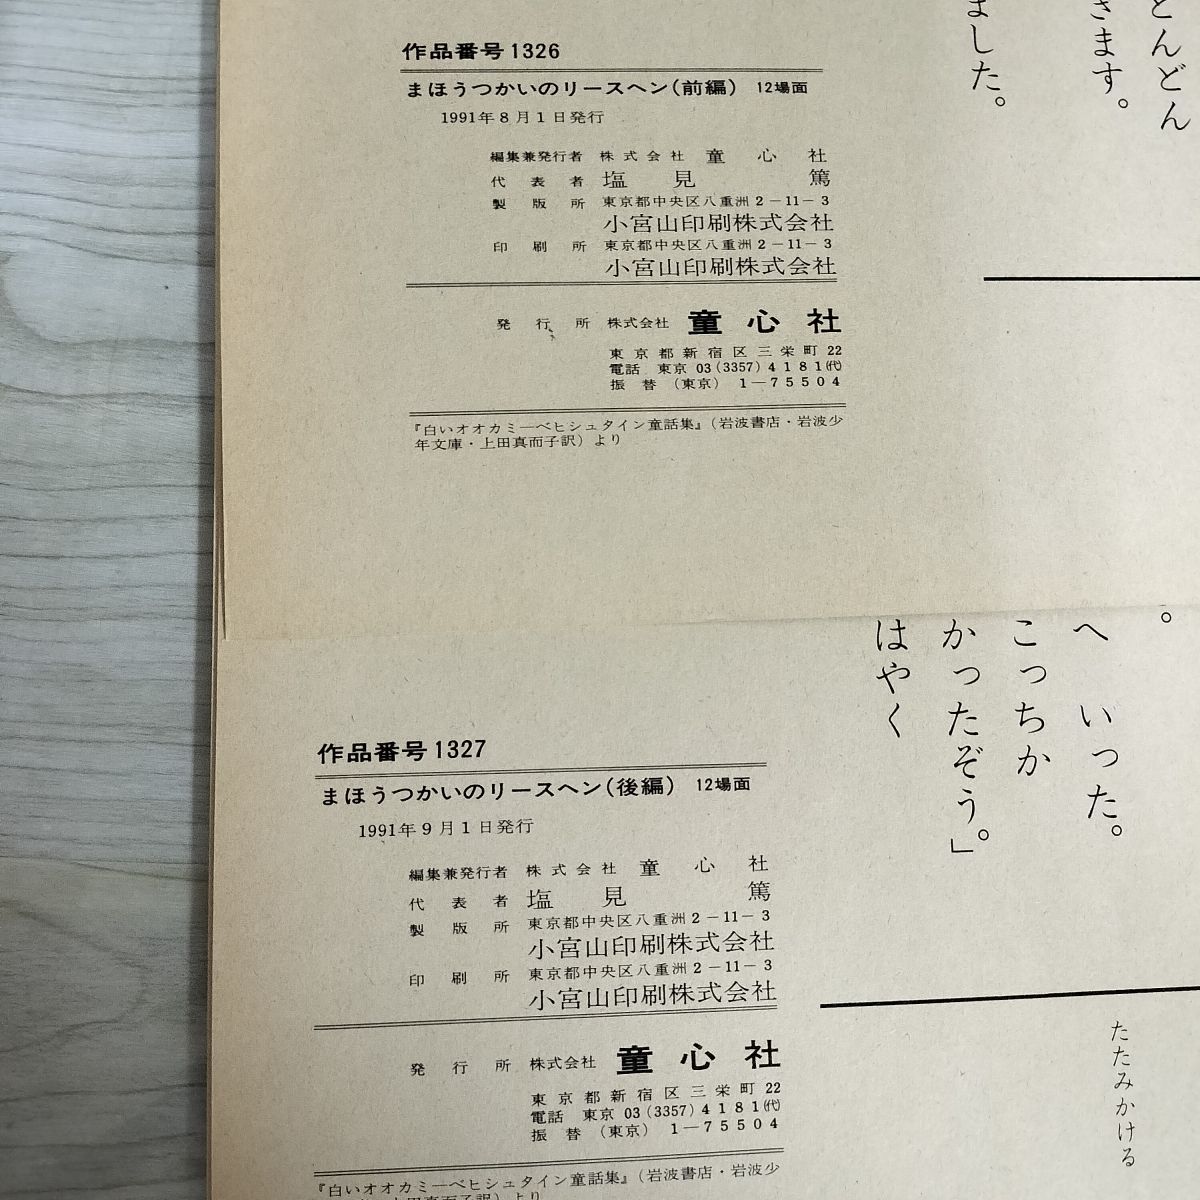 どんどん
きます。
ました。
作品番号1326
まほうつかいのリースヘン(前編) 12場面
1991年8月1日発行
編集兼発行者 株式会社 童心社
代表者 塩見 篤
製版所 東京都中央区八重洲2-11-3
小宮山印刷株式会社
印刷所 東京都中央区八重洲2-11-3
小宮山印刷株式会社
発行所 株式会社 童心社
東京都新宿区三栄町22
電話 東京03(3357)4181㈹
振替 (東京) 1-75504
『白いオオカミ―ベヒシュタイン童話集』(岩波書店・岩波少
年文庫・上田真而子訳)より
。
へ いった。
こっちか
かったぞう。」
はやく
作品番号1327
まほうつかいのリースヘン(後編) 12場面
1991年9月1日発行
編集兼発行者 株式会社 童心社
代表者 塩見 篤
製版所 東京都中央区八重洲2-11-3
小宮山印刷株式会社
印刷所 東京都中央区八重洲2-11-3
小宮山印刷株式会社
発行所 株式会社 童心社
東京都新宿区三栄町22
電話 東京03(3357)4181㈹
振替 (東京) 1-75504
『白いオオカミ―ベヒシュタイン童話集』(岩波書店・岩波少
たたみかける